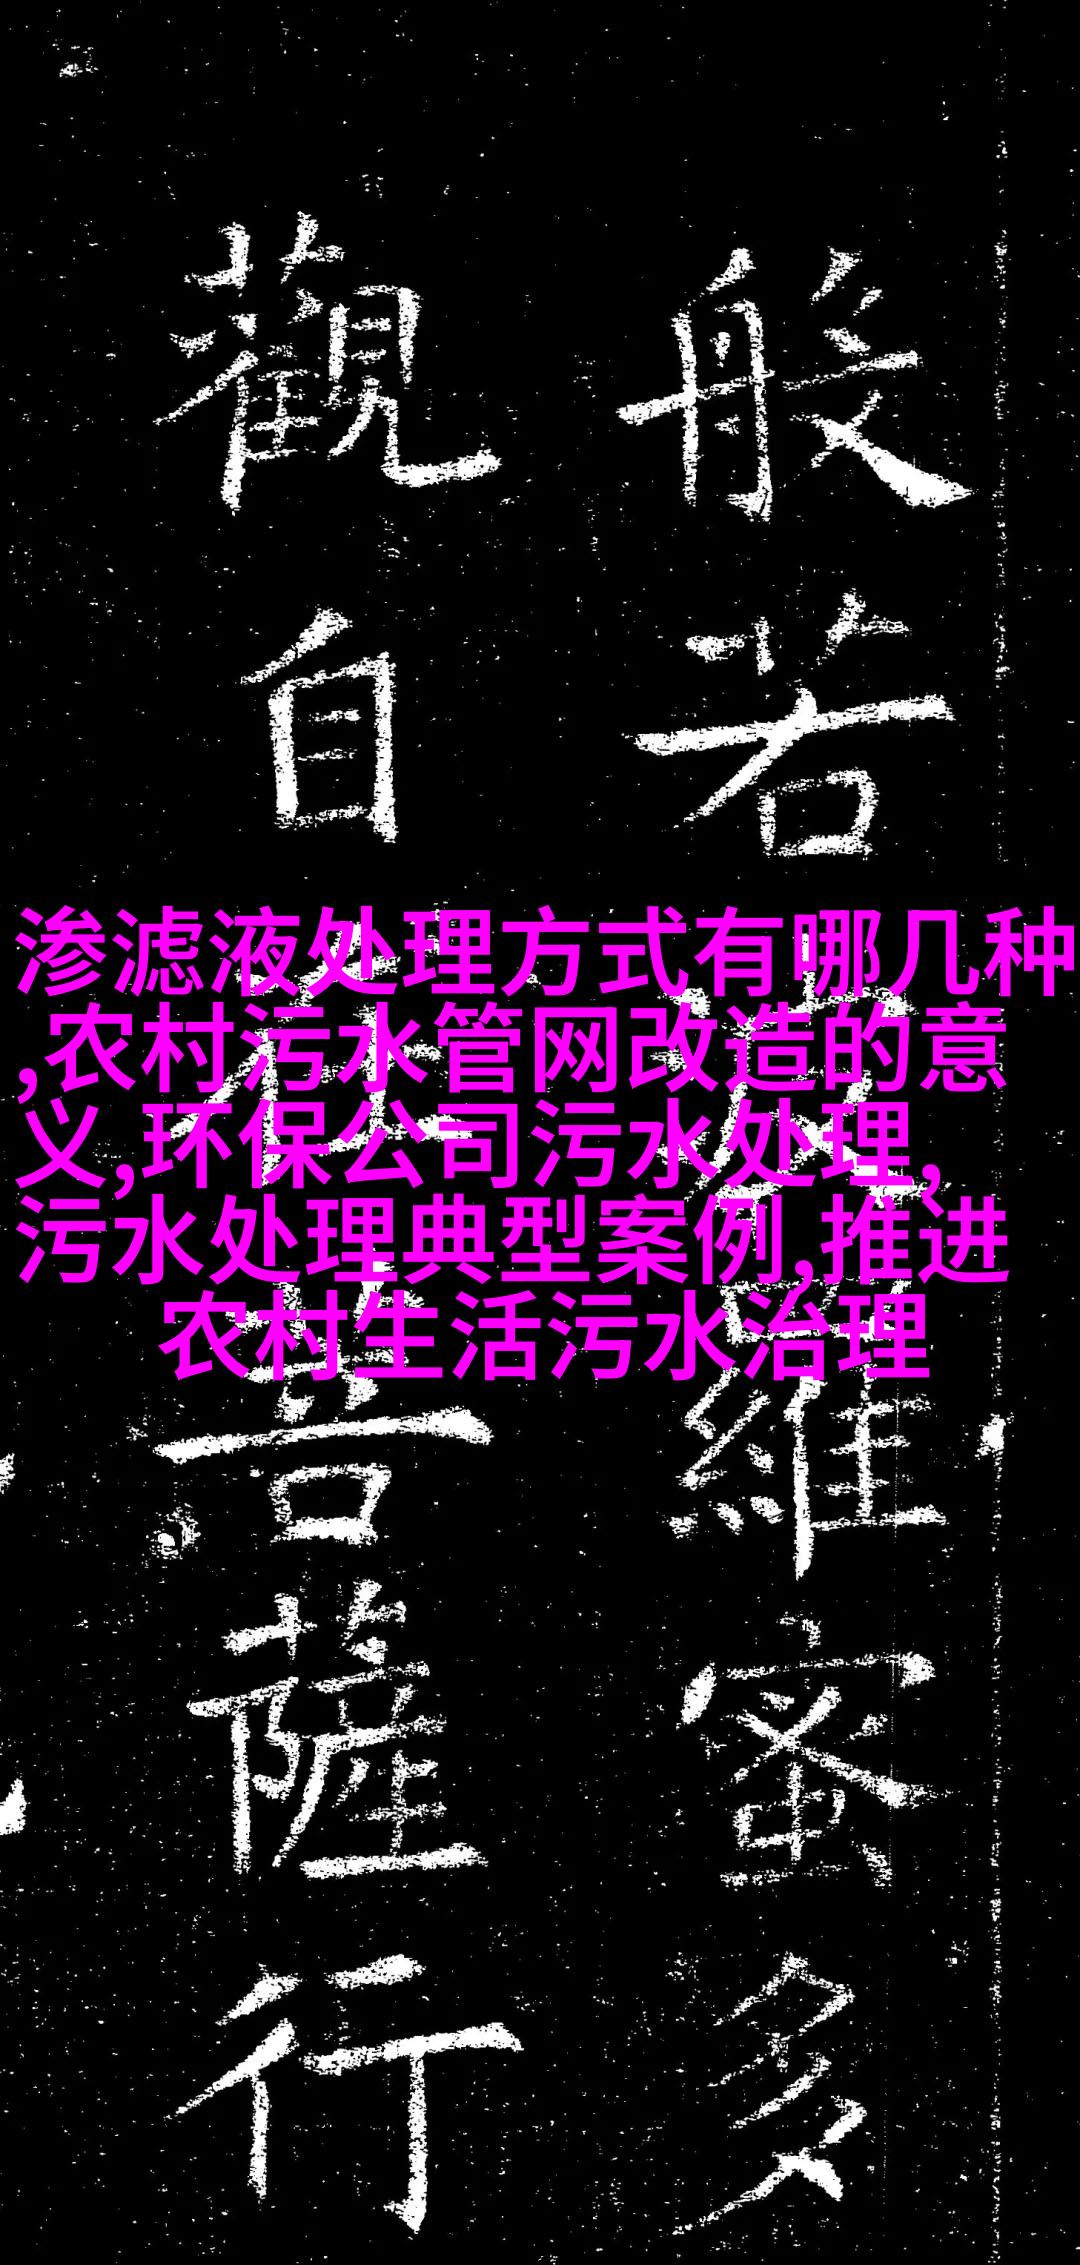 般若波羅蜜多
觀自在菩薩行
渗滤液处理方式有哪几种
,农村污水管网改造的意
义,环保公司污水处理,
污水处理典型案例,推进
农村生活污水治理